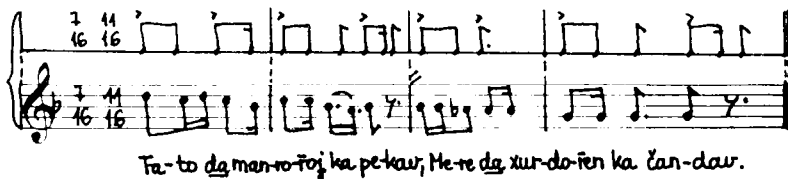 7 11
16 16
7 11
16 16
Ta-to da man-ro-řoj ka pe-kav, Me-re da xur-do-řen ka čan-dav.